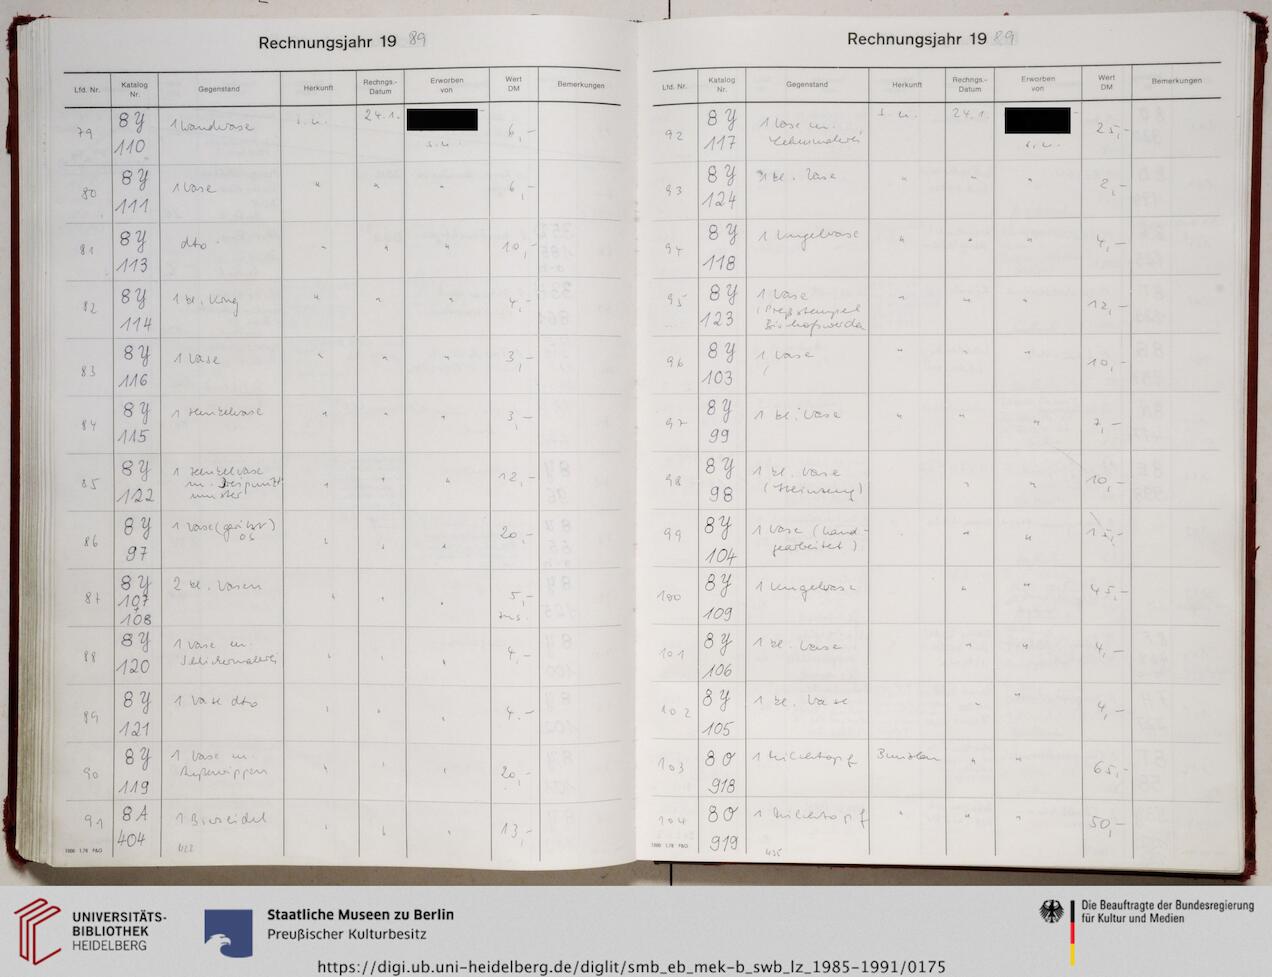 Rechnungsjahr 19 89
Lfd. Nr. Katalog Nr. Gegenstand Herkunft Rechngs.-Datum Erworben von Wert DM Bemerkungen
79 8Y 110 1 Wandvase s.u. 24.1. s.u. 6,-
80 8Y 111 1 Vase " " " 6,-
81 8Y 113 dto " " " 10,-
82 8Y 114 1 kl. Krug " " " 4,-
83 8Y 116 1 Vase " " " 3,-
84 8Y 115 1 Henkelvase " " " 3,-
85 8Y 122 1 Henkelvase m. muster " " " 12,-
86 8Y 97 1 Vase (geritzt) " " " 20,-
87 8Y 107 + 108 2 kl. Vasen " " " 5,- zus.
88 8Y 120 1 Vase m. " " " 4,-
89 8Y 121 1 Vase dto " " " 4.-
90 8Y 119 1 Vase m. " " " 20,-
91 8A 404 1 Bierseidel " " " 13,-
1000 1.78 P&G
Rechnungsjahr 19 89
Lfd. Nr. Katalog Nr. Gegenstand Herkunft Rechngs.-Datum Erworben von Wert DM Bemerkungen
92 8Y 117 1 Vase m. s.u. 24.1. s.u. 25,-
93 8Y 124 1 kl. Vase " " " 2,-
94 8Y 118 1 Kugelvase " " " 4,-
95 8Y 123 1 Vase (Preßstempel Bischofswerda " " " 12,-
96 8Y 103 1 Vase " " " 10,-
97 8Y 99 1 kl. Vase " " " 7,-
98 8Y 98 1 kl. Vase (Steinzeug) " " 10,-
99 8Y 104 1 Vase (handgearbeitet) " " 15,-
100 8Y 109 1 Kugelvase " " 45,-
101 8Y 106 1 kl. Vase " " 4,-
102 8Y 105 1 kl. Vase " 4,-
103 8O 918 1 Milchtopf Bunzlau " " 65,-
104 8O 919 1 Milchtopf " " " 50,-
1000 1.78 P&G
UNIVERSITÄTS-
BIBLIOTHEK
HEIDELBERG
Staatliche Museen zu Berlin
Preußischer Kulturbesitz
Die Beauftragte der Bundesregierung
für Kultur und Medien
https://digi.ub.uni-heidelberg.de/diglit/smb_eb_mek-b_swb_lz_1985-1991/0175